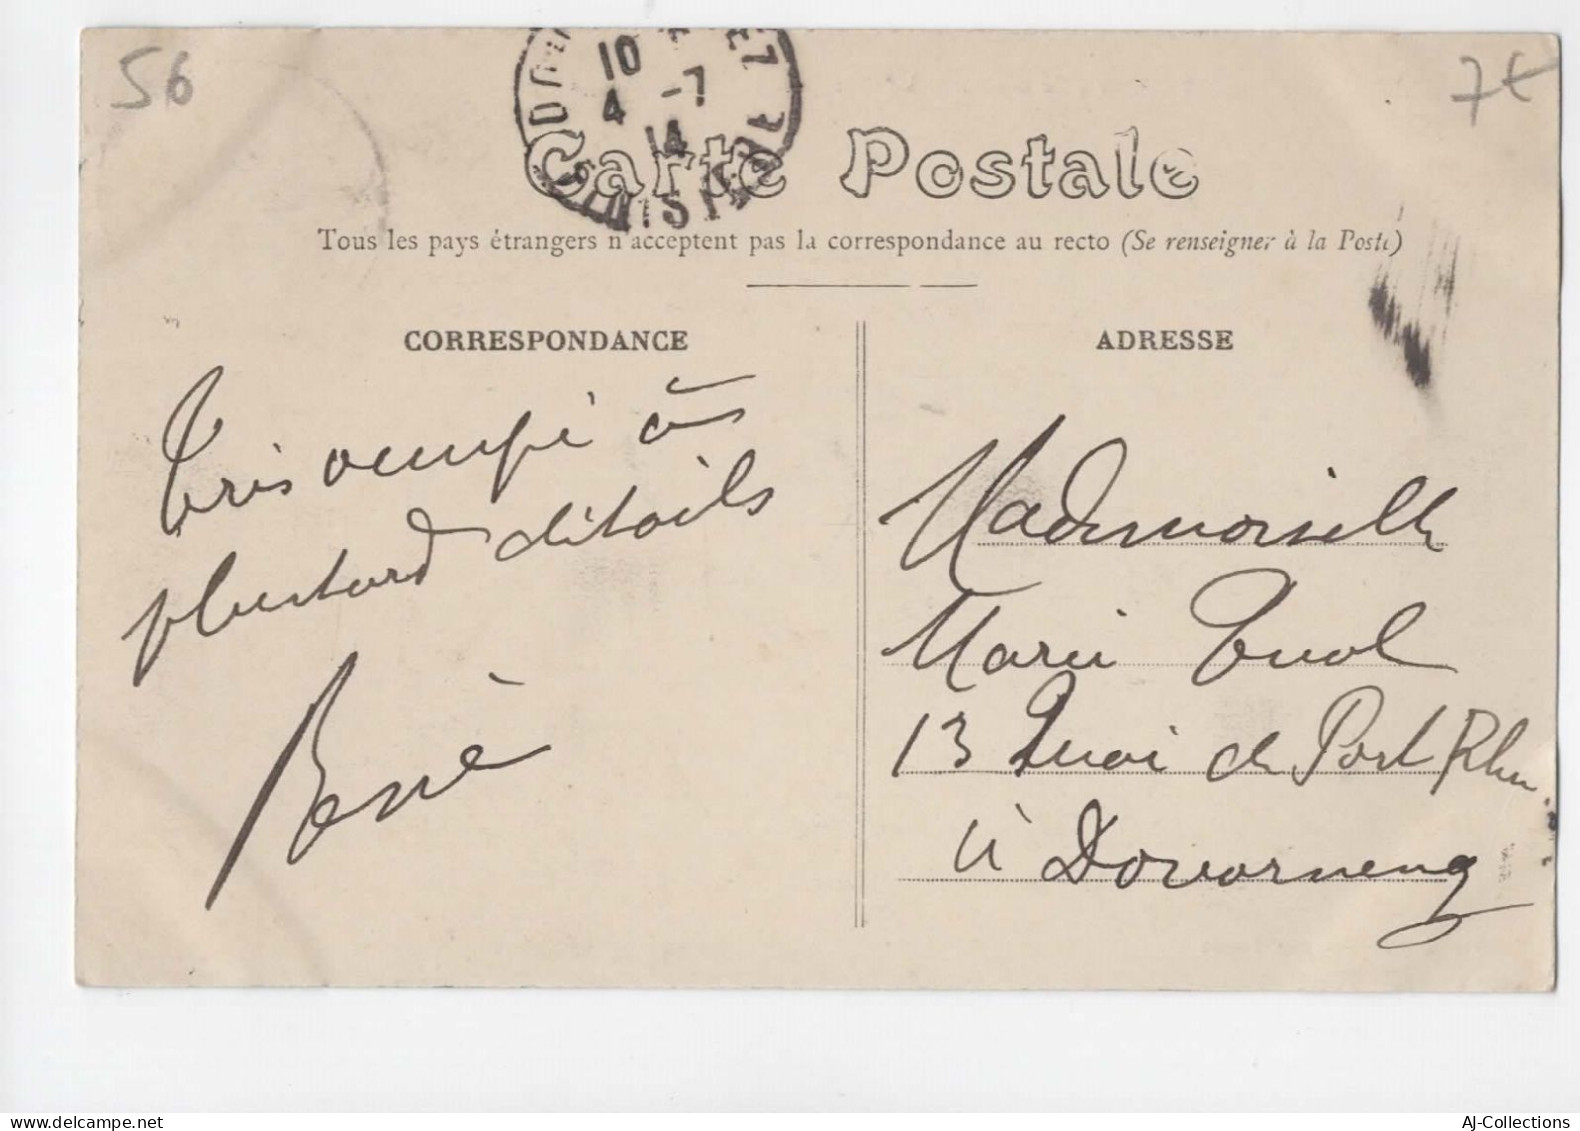 56
7€
10
4 -7
14
Carte Postale
Tous les pays étrangers n'acceptent pas la correspondance au recto (Se renseigner à la Poste)
CORRESPONDANCE
ADRESSE
Très occupé à
plus tard détails
Mademoiselle
Marie
13 Quai de Port Rhu
à Douarnenez
AJ-Collections